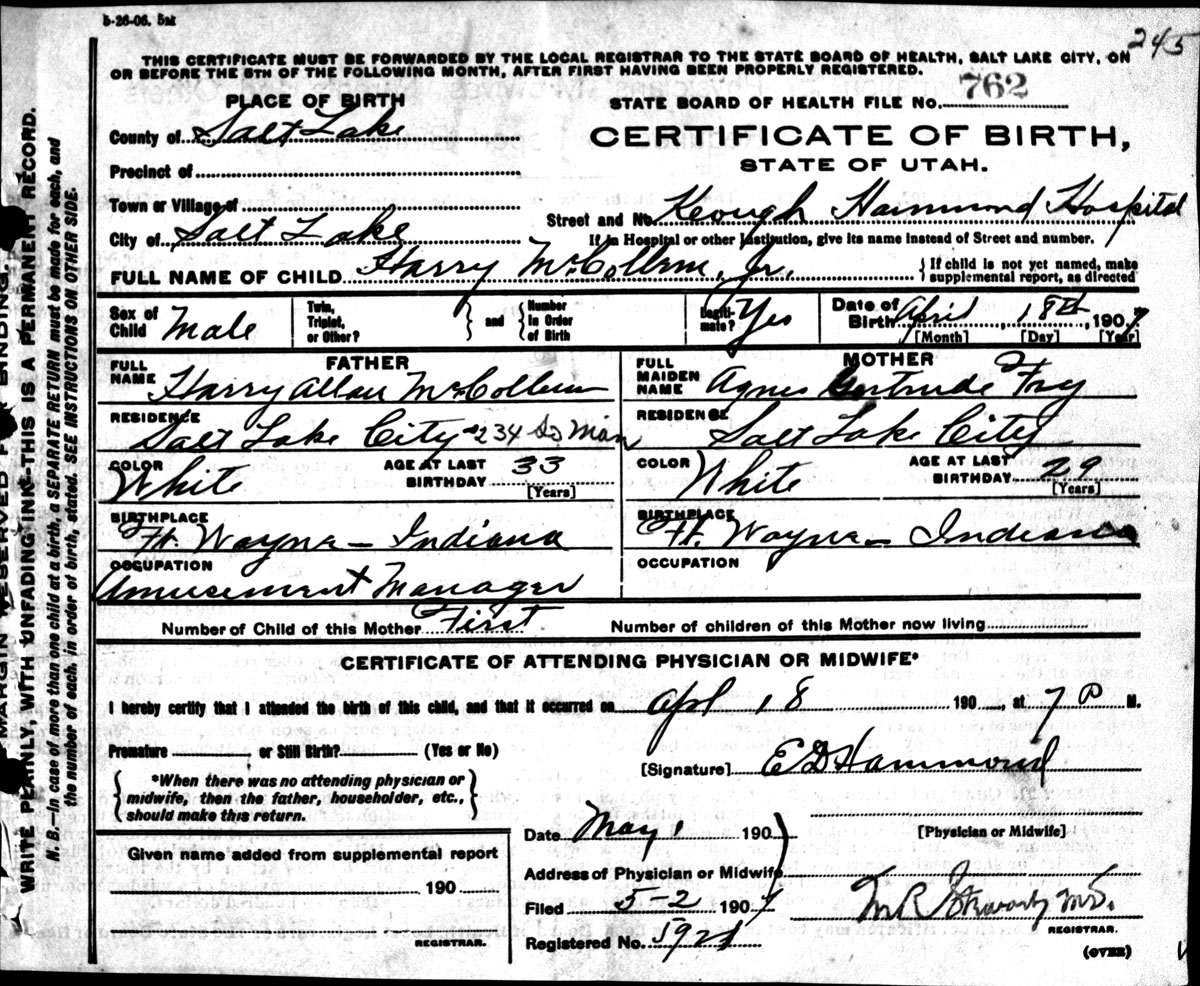 5-26-06. 5M
245
THIS CERTIFICATE MUST BE FORWARDED BY THE LOCAL REGISTRAR TO THE STATE BOARD OF HEALTH, SALT LAKE CITY, ON
OR BEFORE THE 5TH OF THE FOLLOWING MONTH, AFTER FIRST HAVING BEEN PROPERLY REGISTERED.
PLACE OF BIRTH
STATE BOARD OF HEALTH FILE NO. 762
County of Salt Lake
CERTIFICATE OF BIRTH,
STATE OF UTAH.
Precinct of
Town or Village of
Street and No. Keogh Hammond Hospital
City of Salt Lake
If in Hospital or other Institution, give its name instead of Street and number.
FULL NAME OF CHILD Harry McCollum, Jr. {If child is not yet named, make
supplemental report, as directed
Sex of Child Male
Twin, Triplet, or Other? } and { Number in Order of Birth
Legitimate? Yes
Date of Birth April, 18th, 1907
[Month] [Day] [Year]
FATHER
FULL NAME Harry Allan McCollum
RESIDENCE Salt Lake City 234 So Main
COLOR White AGE AT LAST BIRTHDAY 33
[Years]
BIRTHPLACE Ft. Wayne - Indiana
OCCUPATION Amusement Manager
MOTHER
FULL MAIDEN NAME Agnes Gertrude Fry
RESIDENCE Salt Lake City
COLOR White AGE AT LAST BIRTHDAY 29
[Years]
BIRTHPLACE Ft. Wayne - Indiana
OCCUPATION
Number of Child of this Mother First Number of children of this Mother now living
CERTIFICATE OF ATTENDING PHYSICIAN OR MIDWIFE*
I hereby certify that I attended the birth of this child, and that it occurred on Apl 18 190, at 7 P M.
Premature or Still Birth? (Yes or No)
[Signature] E D Hammond
{*When there was no attending physician or
midwife, then the father, householder, etc.,
should make this return.}
[Physician or Midwife]
Date May 1 190
Given name added from supplemental report
Address of Physician or Midwife
190
Filed 5-2 1907
M.D.
REGISTRAR.
REGISTRAR.
Registered No.
(OVER)
MARGIN RESERVED FOR BINDING.
WRITE PLAINLY, WITH UNFADING INK-THIS IS A PERMANENT RECORD.
N. B.-In case of more than one child at a birth, a SEPARATE RETURN must be made for each, and
the number of each, in order of birth, stated. SEE INSTRUCTIONS ON OTHER SIDE.